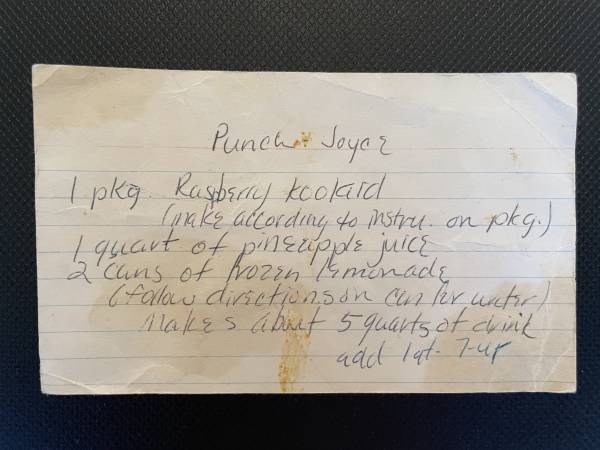 Punch - Joyce
1 pkg. Raspberry koolaid
(make according to instru. on pkg.)
1 quart of pineapple juice
2 cans of frozen lemonade
(follow directions on can for water)
Makes about 5 quarts of drink
add 1 qt. 7-up